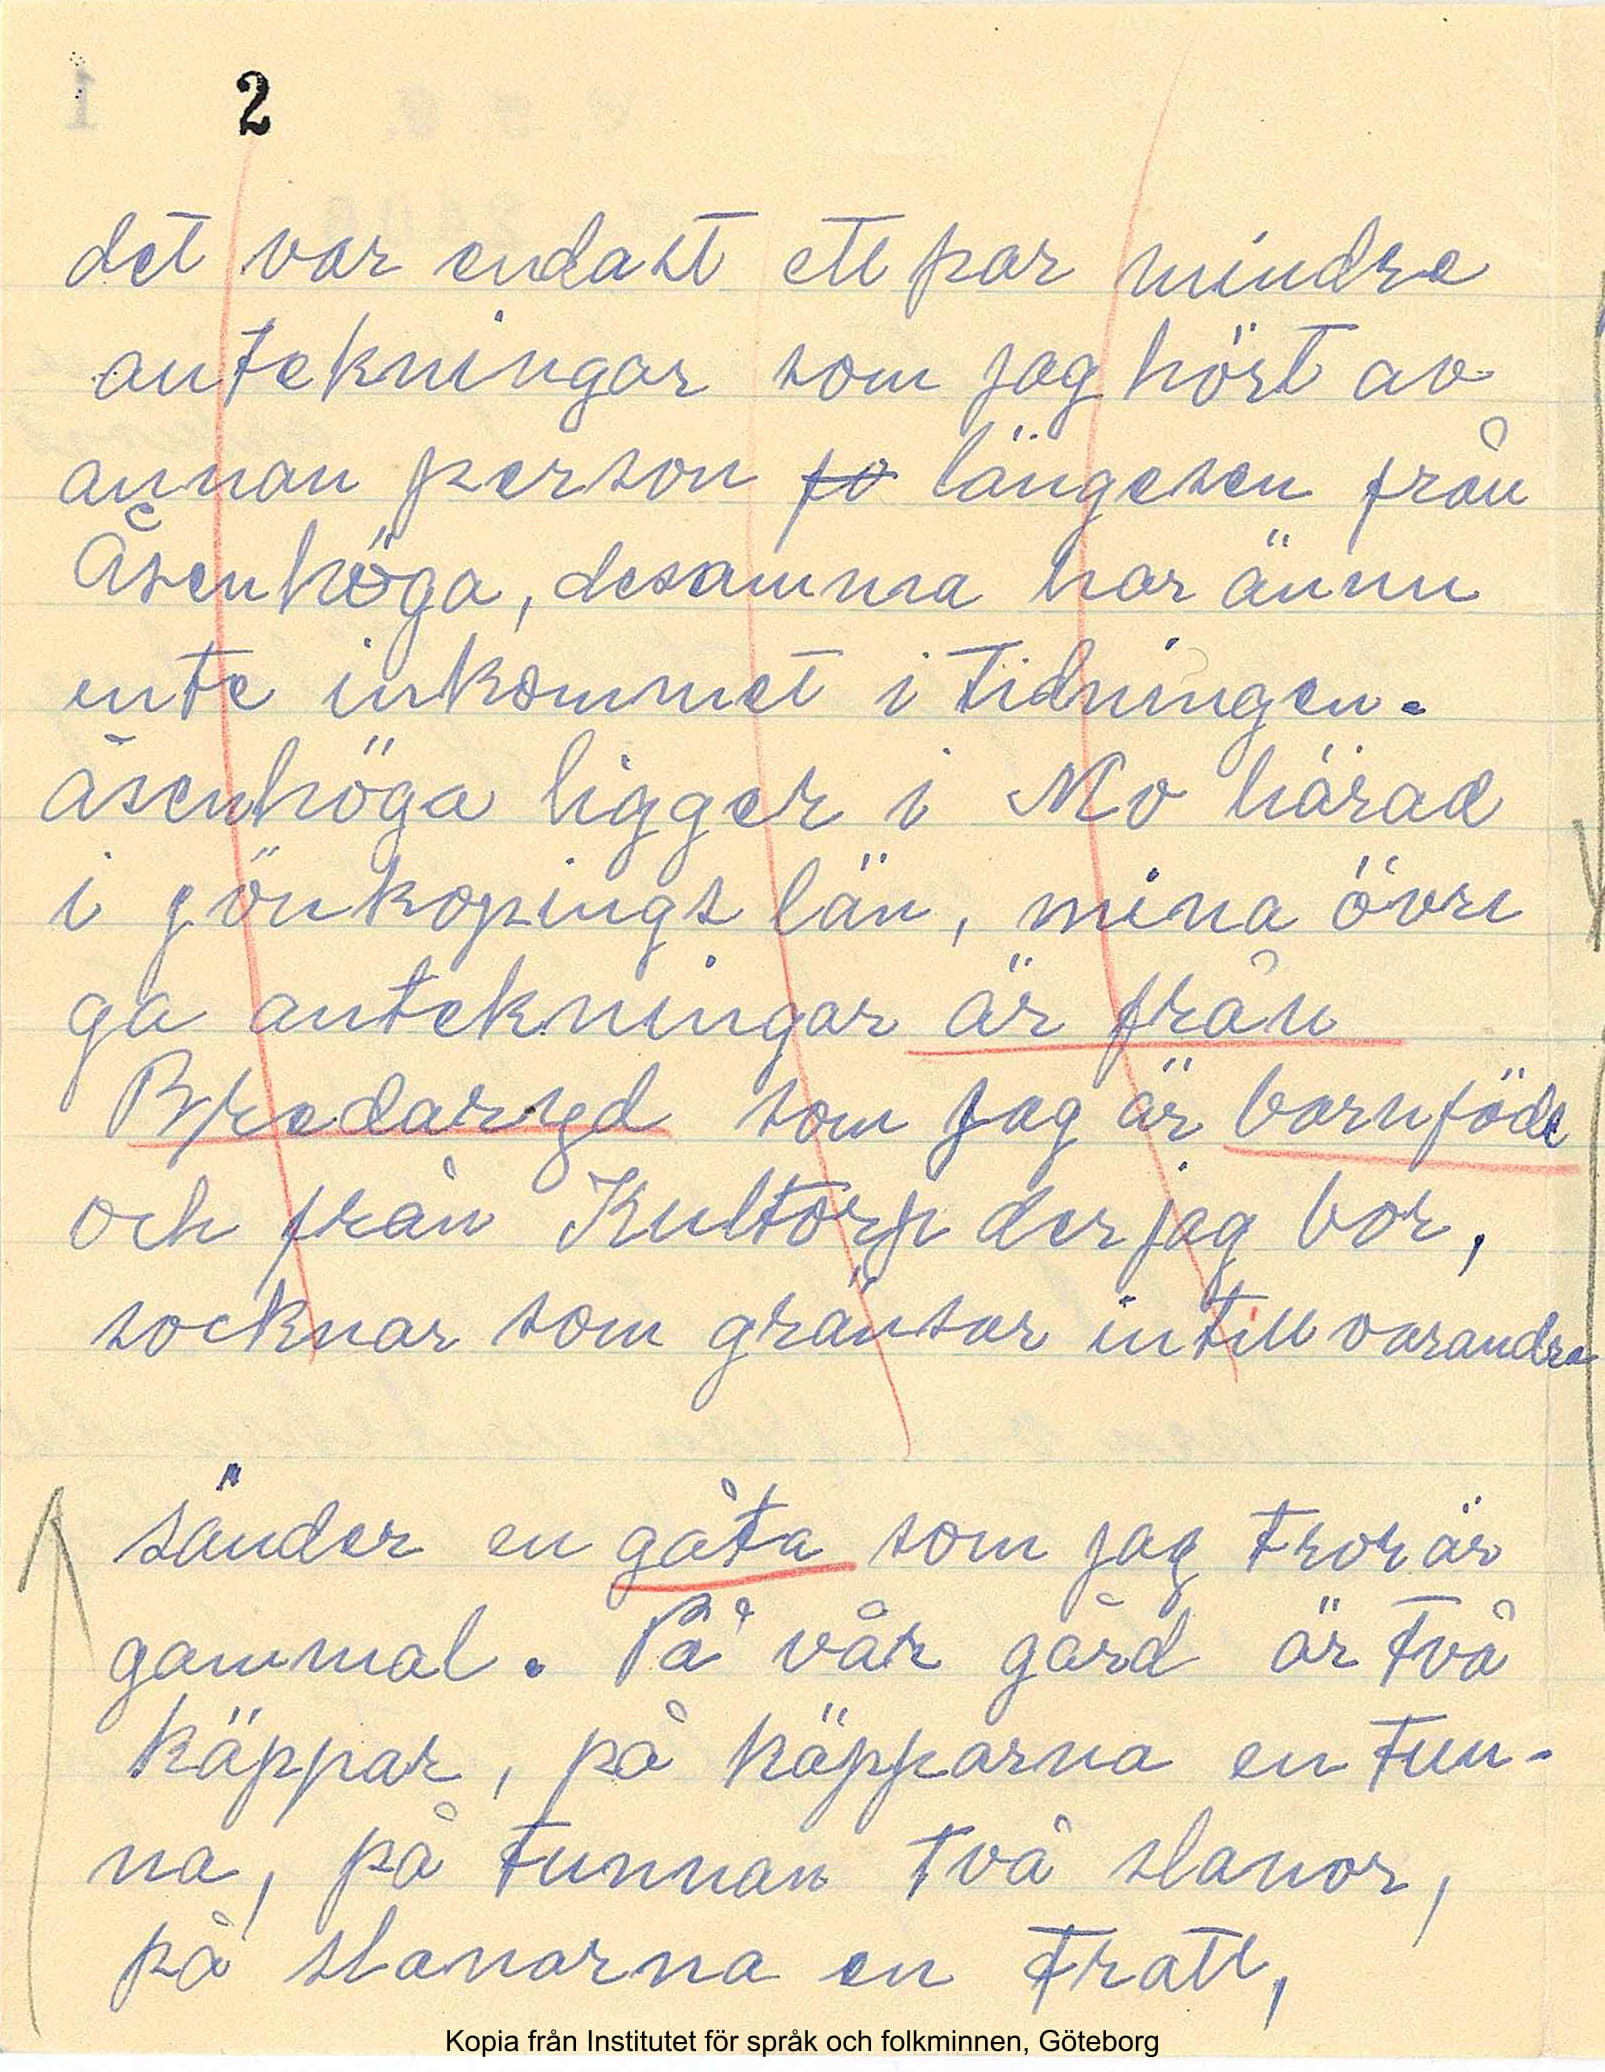 2
det var endast ett par mindre
antekningar som jag hört av
annan person fo längesen från
Åsenhöga, desamma har ännu
ente inkommet i tidningen.
åsenhöga ligger i Mo härad
i jönkopings län, mina övri
ga antekningar är från
Bredaryd som jag är barnföde
och från Kultorp der jag bor,
socknar som gränsar intill varandra
sänder en gåta som jag tror är
gammal. På vår gård är två
käppar, på käpparna en tun-
na, på tunnan två slanor,
på slanorna en tratt,
Kopia från Institutet för språk och folkminnen, Göteborg